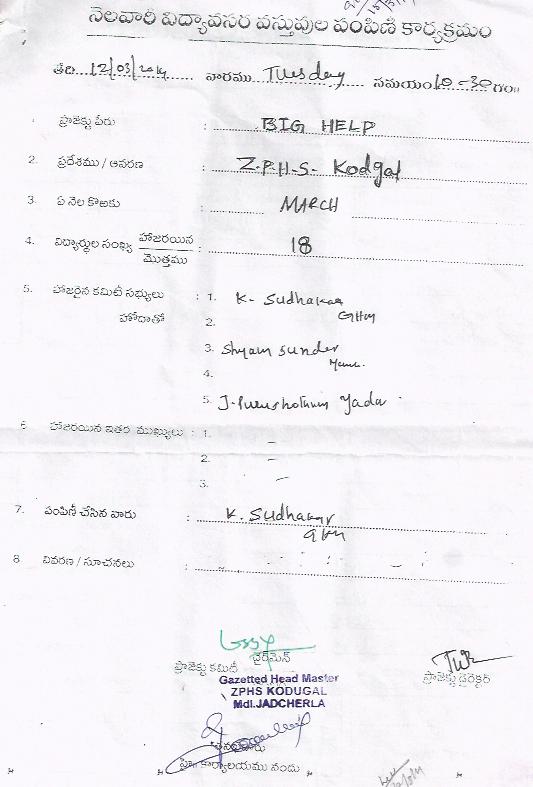 నెలవారీ విద్యావసర వస్తువుల పంపిణీ కార్యక్రమం
తేది 12/03/2014 వారము Tuesday సమయం 10-30 గం॥
ప్రాజెక్టు పేరు : BIG HELP
2. ప్రదేశము / ఆవరణ : Z.P.H.S- Kodgal
3. ఏ నెల కొఱకు : MARCH
4. విద్యార్థుల సంఖ్య హాజరయిన / మొత్తము : 18
5. హాజరైన కమిటీ సభ్యులు : 1. K- Sudhakar
హోదాతో 2. GHM
3. Shyam Sunder
4.
5. J. Purushotham Yadav
6. హాజరయిన ఇతర ముఖ్యులు : 1. –
2. –
3. –
7. పంపిణీ చేసిన వారు : K. Sudhakar
GHM
8 వివరణ / సూచనలు :
ప్రాజెక్టు కమిటీ ఛైర్‌మెన్
Gazetted Head Master
ప్రాజెక్టు డైరెక్టర్
ZPHS KODUGAL
Mdl.JADCHERLA
కార్యాలయము నందు